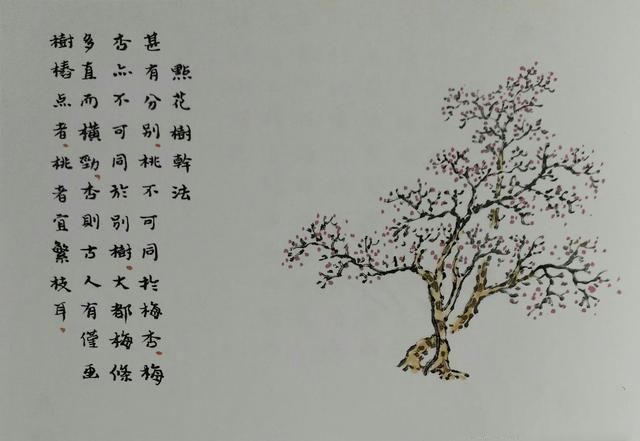 點花樹幹法
甚有分别。桃不可同於梅杏梅
杏亦不可同於别樹。大都梅條
多直而橫勁。杏則古人有僅画
樹樁点者。桃者宜繁枝耳。